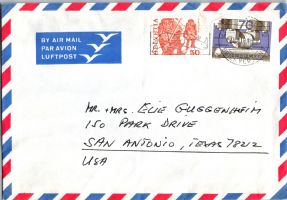 BY AIR MAIL
PAR AVION
LUFTPOST
HELVETIA
50
70
MR. + MRS. ELIE GUGGENHEIM
150 PARK DRIVE
SAN ANTONIO, TEXAS 78212
USA